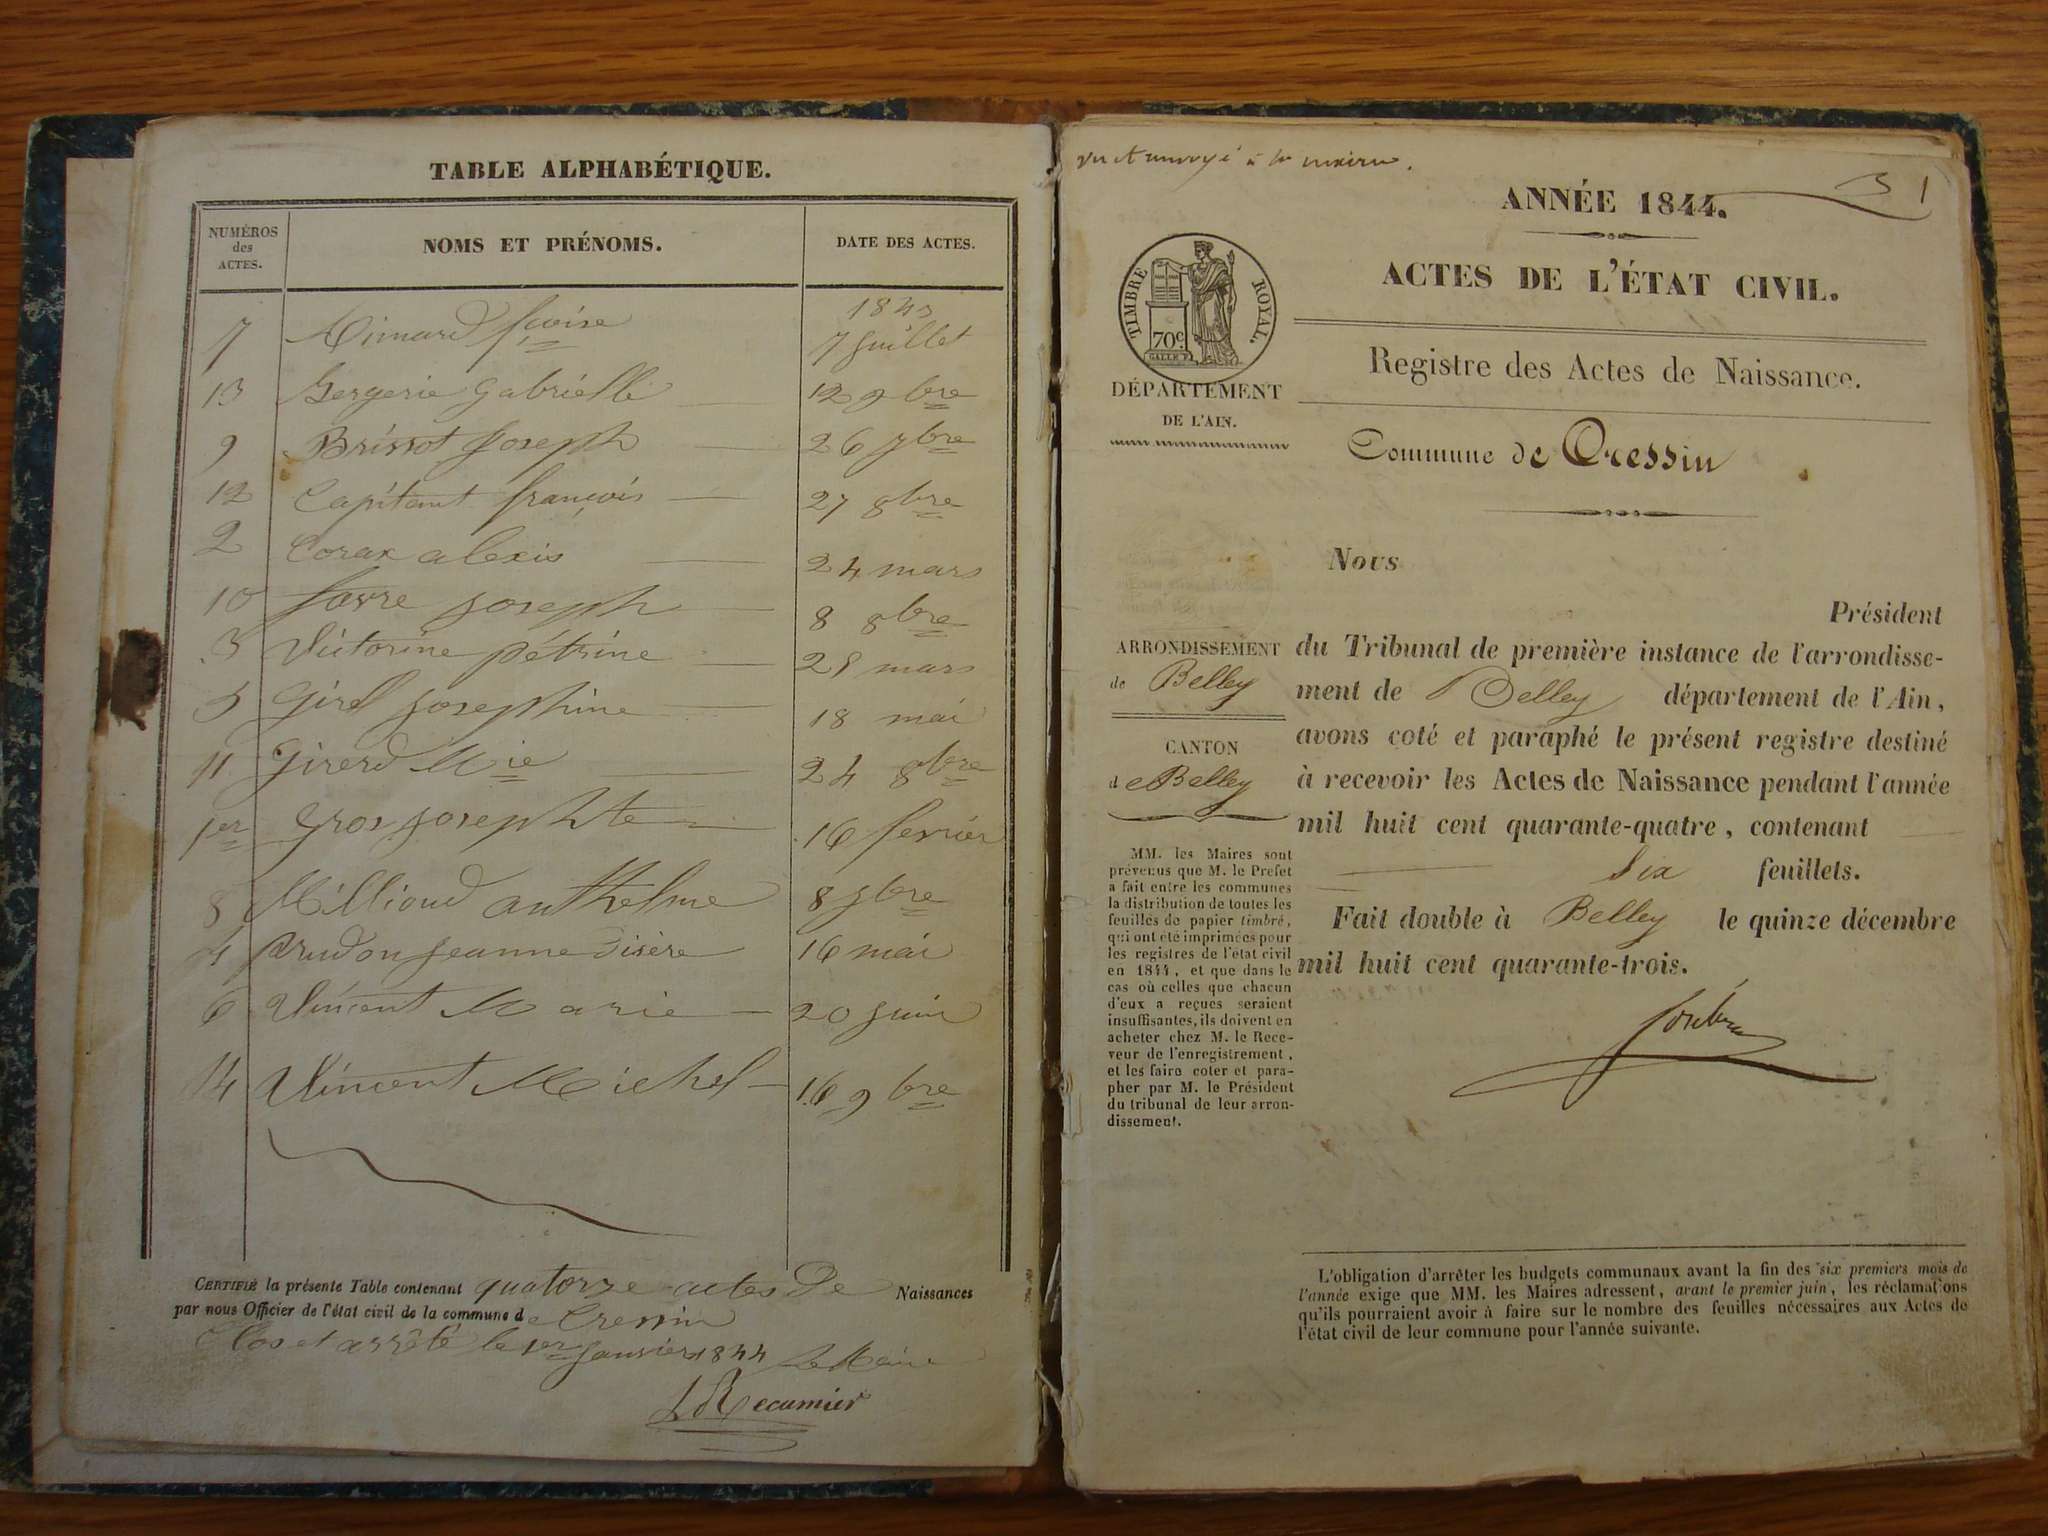 TABLE ALPHABÉTIQUE.
NUMÉROS des ACTES. NOMS ET PRÉNOMS. DATE DES ACTES.
1843
7 fçoise 7 Juillet
13 Bergerie Gabrielle 12 9bre
9 Brissot Joseph 26 7bre
12 Capitant françois 27 8bre
2 Corax alexis 24 mars
10 favre Joseph 8 8bre
3 Victorine pétrine 28 mars
5 Girel Josephine 18 mai
11 Girerd Mie 24 8bre
1er Gros Josephte 16 fevrier
8 Millioud anthelme 8 7bre
4 prudon Jeanne disère 16 mai
6 Vincent Marie 20 Juin
14 Vincent Michel 16 9bre
CERTIFIÉ la présente Table contenant quatorze actes de Naissances
par nous Officier de l'état civil de la commune de Cressin
Clos et arrêté le 1er Janvier 1844 Le Maire
Recamier
vu et envoyé à la mairie.
1
ANNÉE 1844.
ACTES DE L'ÉTAT CIVIL.
TIMBRE ROYAL.
70c.
Registre des Actes de Naissance.
DÉPARTEMENT
DE L'AIN.
Commune de Cressin
Nous
Président
ARRONDISSEMENT
de Belley
CANTON
de Belley
du Tribunal de première instance de l'arrondisse-
ment de Belley département de l'Ain,
avons coté et paraphé le présent registre destiné
à recevoir les Actes de Naissance pendant l'année
mil huit cent quarante-quatre, contenant
Six feuillets.
Fait double à Belley le quinze décembre
mil huit cent quarante-trois.
MM. les Maires sont
prévenus que M. le Préfet
a fait entre les communes
la distribution de toutes les
feuilles de papier timbré,
qui ont été imprimées pour
les registres de l'état civil
en 1844, et que dans le
cas où celles que chacun
d'eux a reçues seraient
insuffisantes, ils doivent en
acheter chez M. le Rece-
veur de l'enregistrement,
et les faire coter et para-
pher par M. le Président
du tribunal de leur arron-
dissement.
L'obligation d'arrêter les budgets communaux avant la fin des six premiers mois de
l'année exige que MM. les Maires adressent, avant le premier juin, les réclamations
qu'ils pourraient avoir à faire sur le nombre des feuilles nécessaires aux Actes de
l'état civil de leur commune pour l'année suivante.